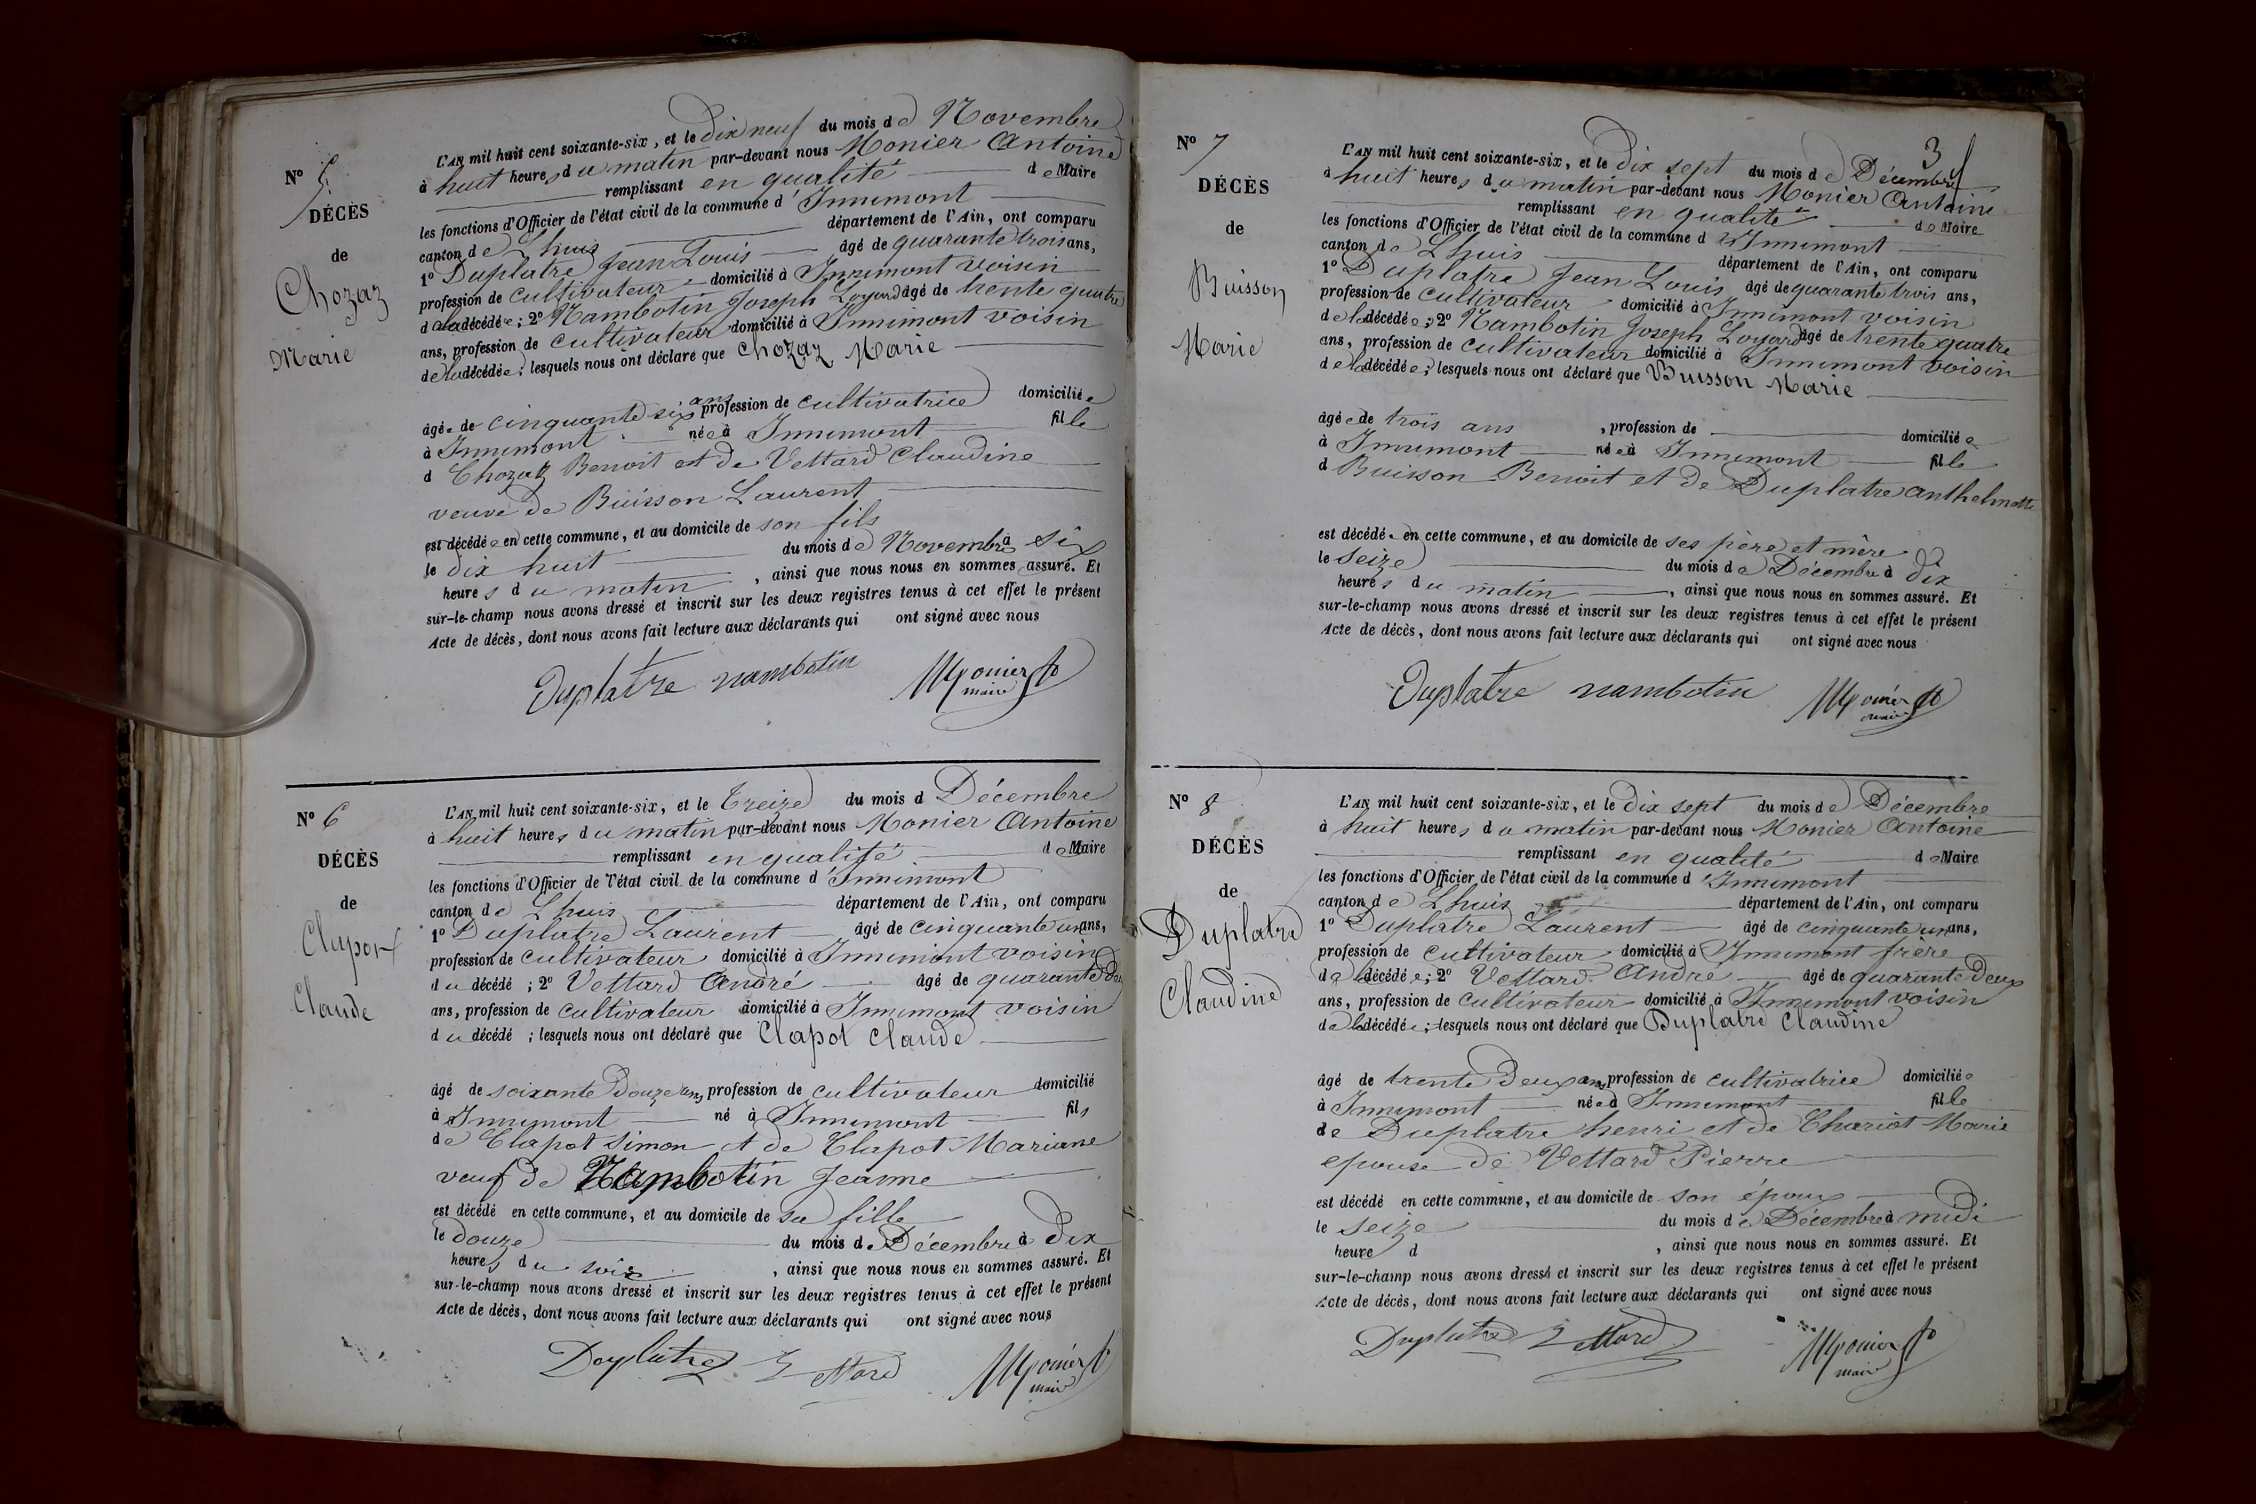 N° 5
DÉCÈS
de
Chozaz
Marie
L'AN mil huit cent soixante-six, et le dix neuf du mois de Novembre
à huit heures du matin par-devant nous Monier Antoine
remplissant en qualité de Maire
les fonctions d'Officier de l'état civil de la commune d'Innimont
canton de Lhuis département de l'Ain, ont comparu
1° Duplatre Jean Louis âgé de quarante trois ans,
profession de cultivateur domicilié à Innimont voisin
de la décédée; 2° Nambotin Joseph Loyard âgé de trente quatre
ans, profession de cultivateur domicilié à Innimont voisin
de la décédée; lesquels nous ont déclaré que Chozaz Marie
âgée de cinquante six ans profession de cultivatrice domiciliée
à Innimont née à Innimont fille
d Chozatz Benoit et de Vettard Claudine
veuve de Buisson Laurent
est décédée en cette commune, et au domicile de son fils
le dix huit du mois de Novembre à six
heures du matin, ainsi que nous nous en sommes assuré. Et
sur-le-champ nous avons dressé et inscrit sur les deux registres tenus à cet effet le présent
Acte de décès, dont nous avons fait lecture aux déclarants qui ont signé avec nous
Duplatre nambotin Monier
maire
N° 6
DÉCÈS
de
Clapot
Claude
L'AN mil huit cent soixante-six, et le treize du mois d Décembre
à huit heures du matin par-devant nous Monier Antoine
remplissant en qualité de Maire
les fonctions d'Officier de l'état civil de la commune d'Innimont
canton de Lhuis département de l'Ain, ont comparu
1° Duplatre Laurent âgé de cinquante un ans,
profession de cultivateur domicilié à Innimont voisin
du décédé; 2° Vettard André âgé de quarante deux
ans, profession de cultivateur domicilié à Innimont voisin
du décédé; lesquels nous ont déclaré que Clapot Claude
âgé de soixante Douze ans profession de cultivateur domicilié
à Innimont né à Innimont fils
de Clapot Simon et de Clapot Mariane
veuf de Nambotin Jeanne
est décédé en cette commune, et au domicile de sa fille
le douze du mois de Décembre à Dix
heures du soir, ainsi que nous nous en sommes assuré. Et
sur-le-champ nous avons dressé et inscrit sur les deux registres tenus à cet effet le présent
Acte de décès, dont nous avons fait lecture aux déclarants qui ont signé avec nous
Duplatre Vettard Monier
maire
3
N° 7
DÉCÈS
de
Buisson
Marie
L'AN mil huit cent soixante-six, et le dix sept du mois de Décembre
à huit heures du matin par-devant nous Monier Antoine
remplissant en qualité de Maire
les fonctions d'Officier de l'état civil de la commune d'Innimont
canton de Lhuis département de l'Ain, ont comparu
1° Duplatre Jean Louis âgé de quarante trois ans,
profession de cultivateur domicilié à Innimont voisin
de la décédée; 2° Nambotin Joseph Loyard âgé de trente quatre
ans, profession de cultivateur domicilié à Innimont voisin
de la décédée; lesquels nous ont déclaré que Buisson Marie
âgée de trois ans, profession de domiciliée
à Innimont née à Innimont fille
d Buisson Benoit et de Duplatre Anthelmette
est décédée en cette commune, et au domicile de ses père et mère
le seize du mois de Décembre à dix
heures du matin, ainsi que nous nous en sommes assuré. Et
sur-le-champ nous avons dressé et inscrit sur les deux registres tenus à cet effet le présent
Acte de décès, dont nous avons fait lecture aux déclarants qui ont signé avec nous
Duplatre nambotin Monier
maire
N° 8
DÉCÈS
de
Duplatre
Claudine
L'AN mil huit cent soixante-six, et le dix sept du mois de Décembre
à huit heures du matin par-devant nous Monier Antoine
remplissant en qualité de Maire
les fonctions d'Officier de l'état civil de la commune d'Innimont
canton de Lhuis département de l'Ain, ont comparu
1° Duplatre Laurent âgé de cinquante un ans,
profession de cultivateur domicilié à Innimont frère
de la décédée; 2° Vettard André âgé de quarante deux
ans, profession de cultivateur domicilié à Innimont voisin
de la décédée; lesquels nous ont déclaré que Duplatre Claudine
âgé de trente Deux ans profession de cultivatrice domiciliée
à Innimont née à Innimont fille
de Duplatre henri et de Chariot Marie
epouse de Vettard Pierre
est décédé en cette commune, et au domicile de son époux
le seize du mois de Décembre à midi
heure d, ainsi que nous nous en sommes assuré. Et
sur-le-champ nous avons dressé et inscrit sur les deux registres tenus à cet effet le présent
Acte de décès, dont nous avons fait lecture aux déclarants qui ont signé avec nous
Duplatre Vettard Monier
maire